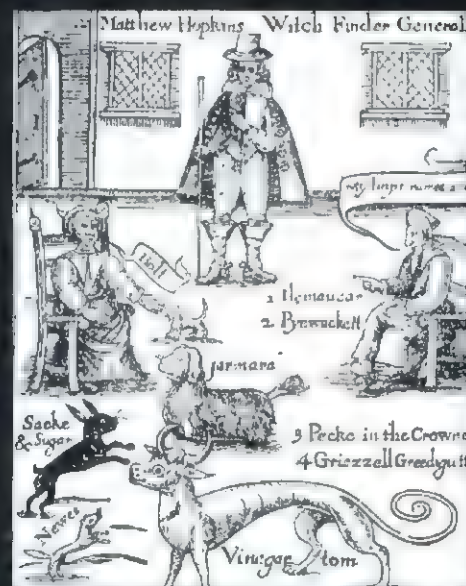 Matthew Hopkins Witch Finder General
My Imps names a
Holt
1 Ilemauzar
2 Pyewackett
Jarmara
Sacke
& Sugar
3 Pecke in the Crowne
4 Griezzell Greedigutt
Newes
Vinegar tom